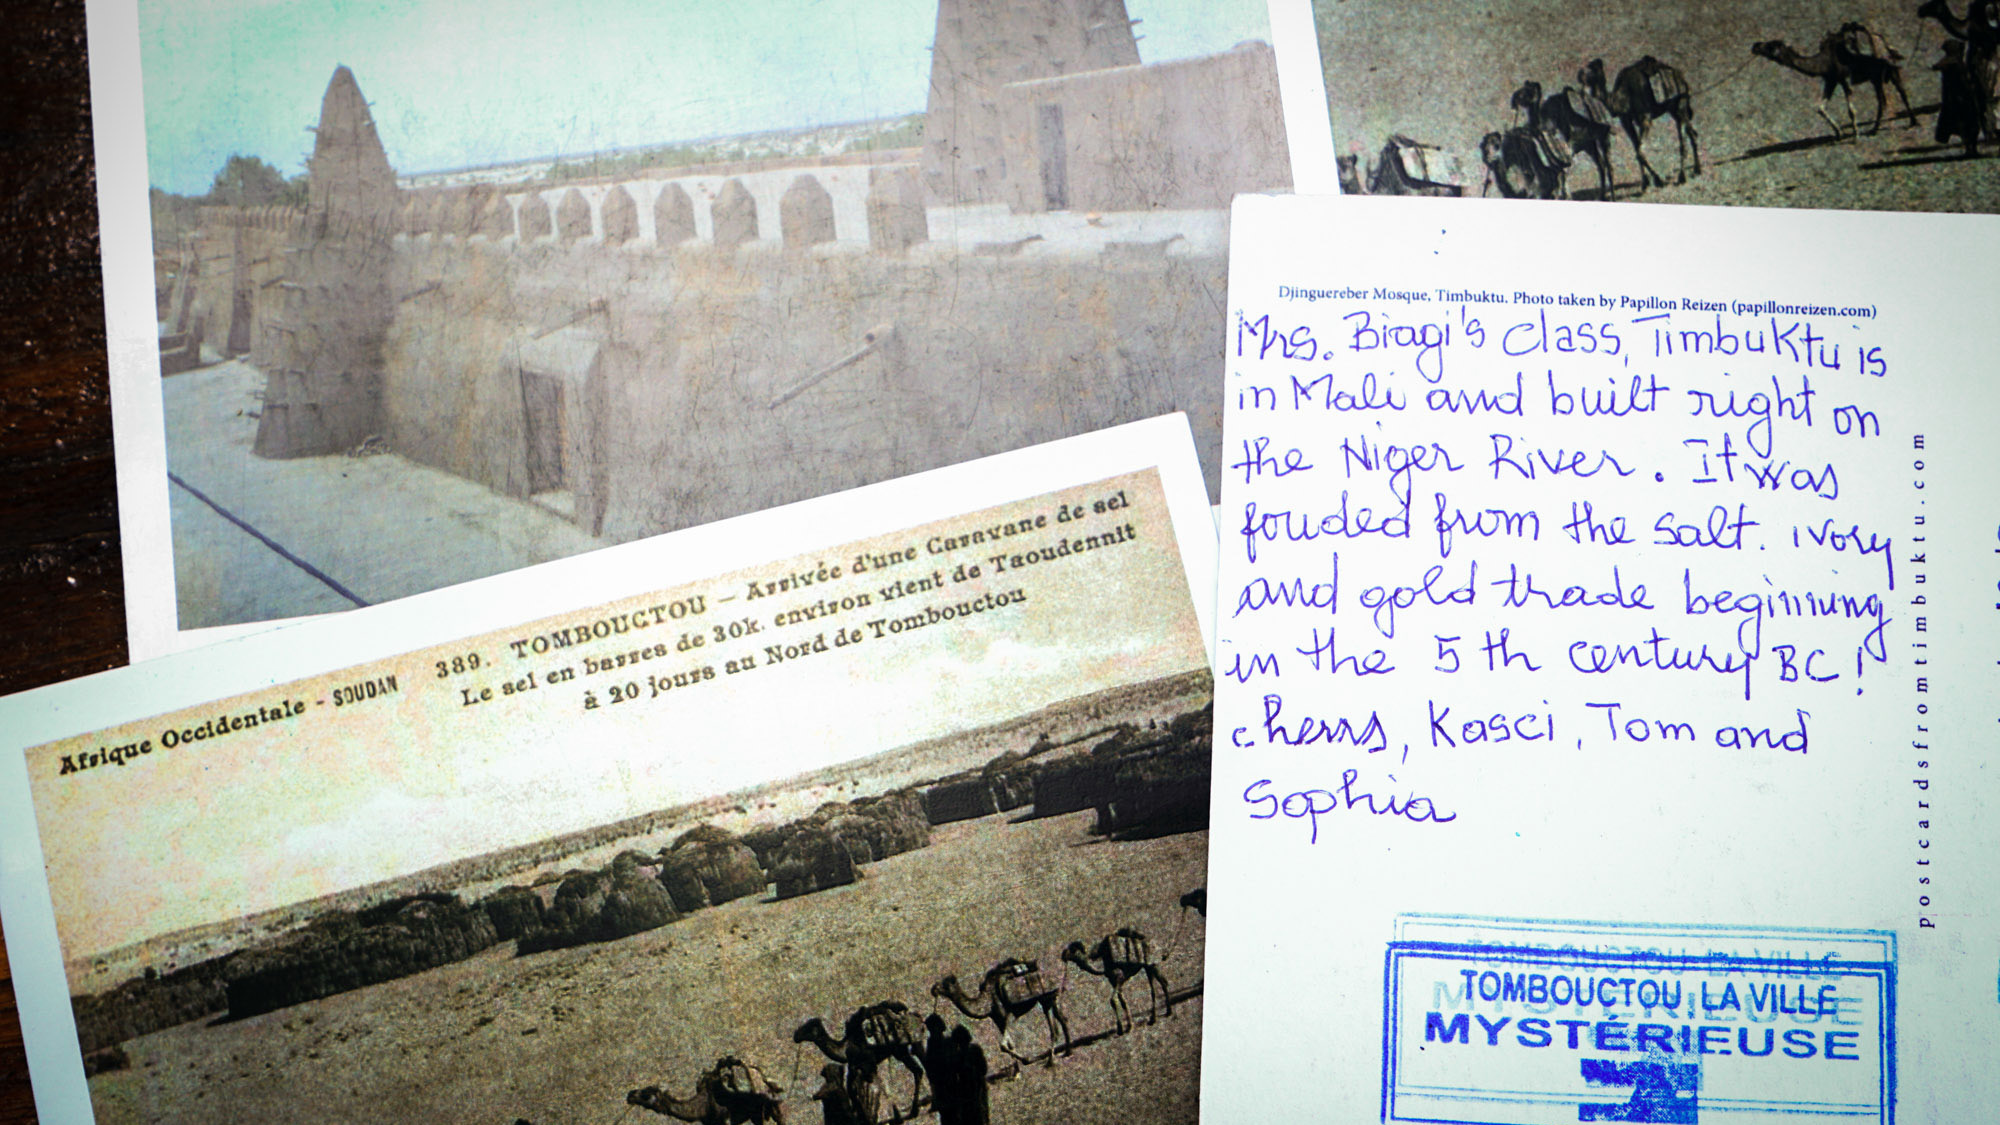 Afrique Occidentale - SOUDAN
389. TOMBOUCTOU — Arrivée d'une Caravane de sel
Le sel en barres de 30k. environ vient de Taoudennit
à 20 jours au Nord de Tombouctou
Djinguereber Mosque, Timbuktu. Photo taken by Papillon Reizen (papillonreizen.com)
Mrs. Biagi's class, Timbuktu is
in Mali and built right on
the Niger River. It was
fouded from the salt. ivory
and gold trade beginning
in the 5th century BC!
cherrs, Kasci, Tom and
Sophia
postcardsfromtimbuktu.com
TOMBOUCTOU LA VILLE
MYSTÉRIEUSE